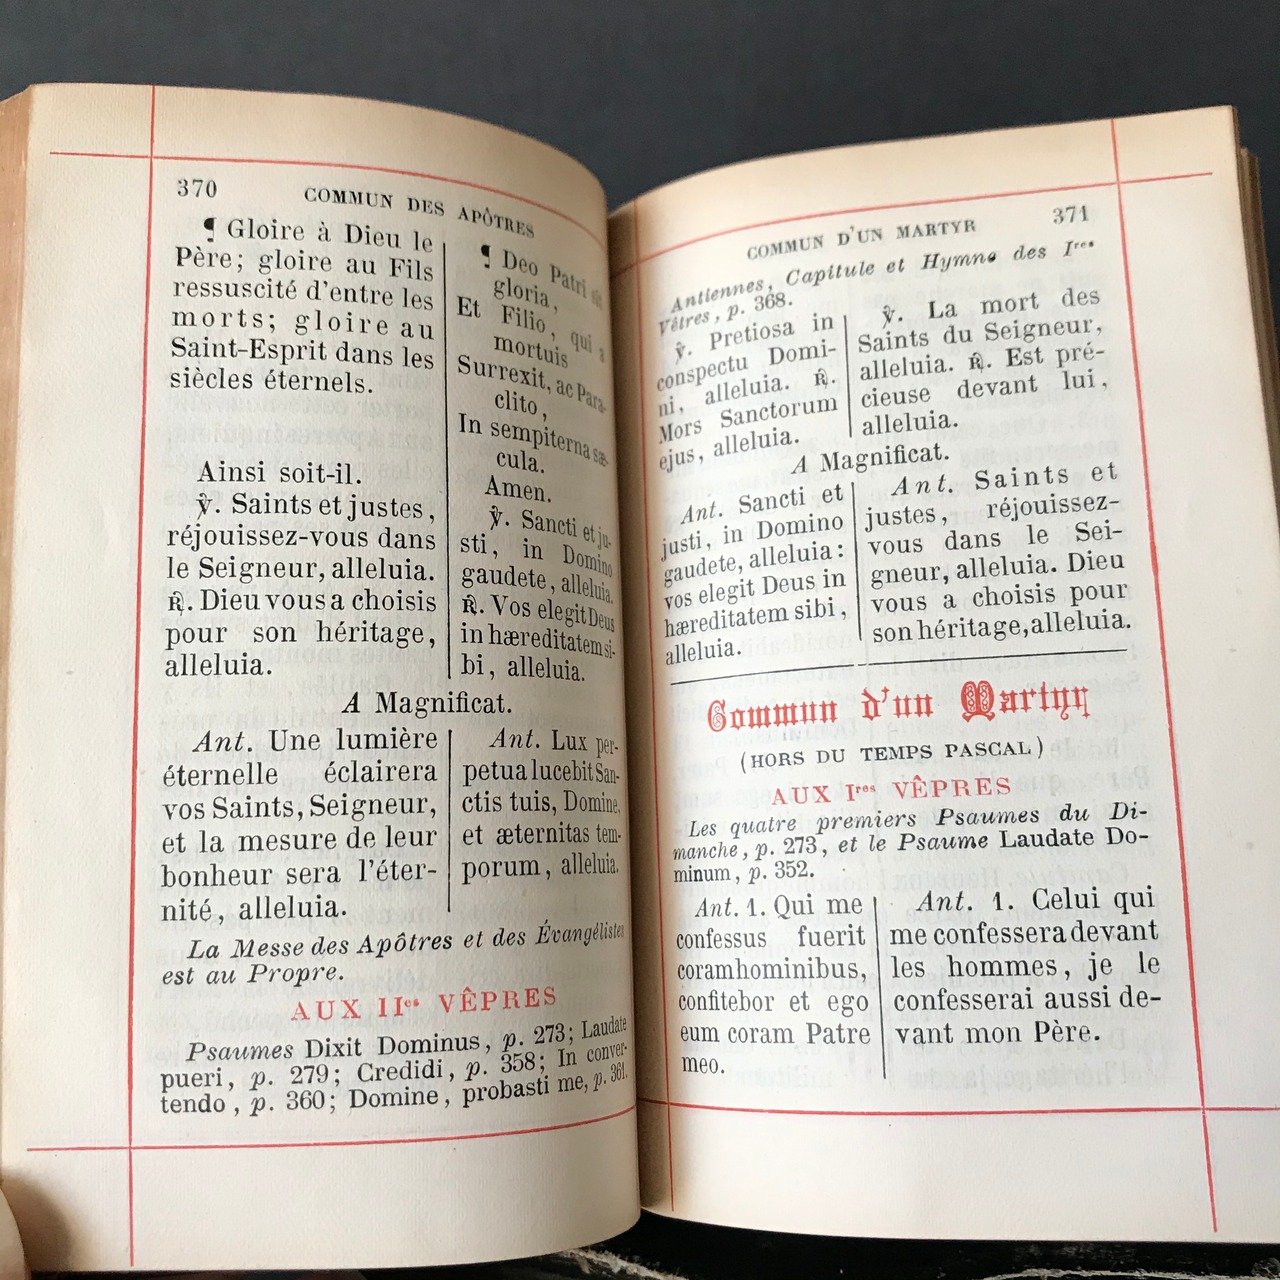 370
COMMUN DES APÔTRES
¶ Gloire à Dieu le
Père; gloire au Fils
ressuscité d'entre les
morts; gloire au
Saint-Esprit dans les
siècles éternels.
Ainsi soit-il.
℣. Saints et justes,
réjouissez-vous dans
le Seigneur, alleluia.
℟. Dieu vous a choisis
pour son héritage,
alleluia.
¶ Deo Patri sit
gloria,
Et Filio, qui a
mortuis
Surrexit, ac Para-
clito,
In sempiterna sæ-
cula.
Amen.
℣. Sancti et ju-
sti, in Domino
gaudete, alleluia.
℟. Vos elegit Deus
in hæreditatem si-
bi, alleluia.
A Magnificat.
Ant. Une lumière
éternelle éclairera
vos Saints, Seigneur,
et la mesure de leur
bonheur sera l'éter-
nité, alleluia.
Ant. Lux per-
petua lucebit San-
ctis tuis, Domine,
et æternitas tem-
porum, alleluia.
La Messe des Apôtres et des Évangélistes
est au Propre.
AUX IIes VÊPRES
Psaumes Dixit Dominus, p. 273; Laudate
pueri, p. 279; Credidi, p. 358; In conver-
tendo, p. 360; Domine, probasti me, p. 361.
COMMUN D'UN MARTYR
371
Antiennes, Capitule et Hymne des Ires
Vêtres, p. 368.
℣. Pretiosa in
conspectu Domi-
ni, alleluia. ℟.
Mors Sanctorum
ejus, alleluia.
℣. La mort des
Saints du Seigneur,
alleluia. ℟. Est pré-
cieuse devant lui,
alleluia.
A Magnificat.
Ant. Sancti et
justi, in Domino
gaudete, alleluia:
vos elegit Deus in
hæreditatem sibi,
alleluia.
Ant. Saints et
justes, réjouissez-
vous dans le Sei-
gneur, alleluia. Dieu
vous a choisis pour
son héritage, alleluia.
Commun d'un Martyr
(HORS DU TEMPS PASCAL)
AUX Ires VÊPRES
Les quatre premiers Psaumes du Di-
manche, p. 273, et le Psaume Laudate Do-
minum, p. 352.
Ant. 1. Qui me
confessus fuerit
coram hominibus,
confitebor et ego
eum coram Patre
meo.
Ant. 1. Celui qui
me confessera devant
les hommes, je le
confesserai aussi de-
vant mon Père.